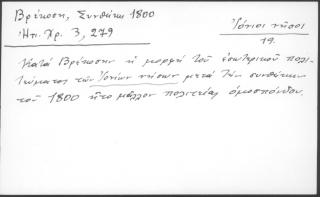 Βρέκοση, Συνθήκη 1800
Ἠπ. Χρ. 3, 279
Ἰόνιοι νῆσοι
19.
Κατά Βρέκοσην ἡ μορφή τοῦ ἐσωτερικοῦ πολι-
τεύματος τῶν Ἰονίων νήσων μετά τήν συνθήκην
τοῦ 1800 ἦτο μᾶλλον πολιτείας ὁμοσπόνδου.